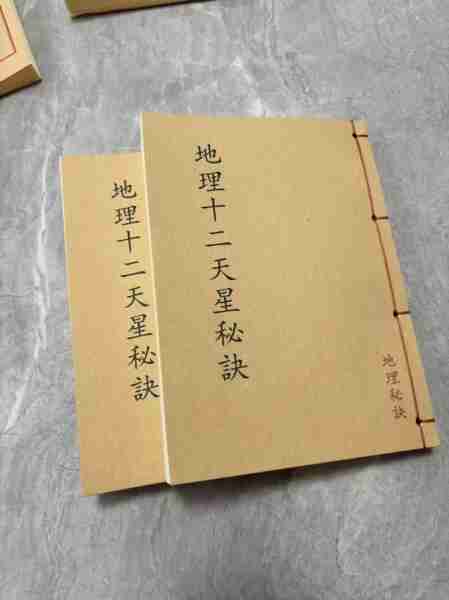 地理十二天星秘訣
地理十二天星秘訣
地理秘訣